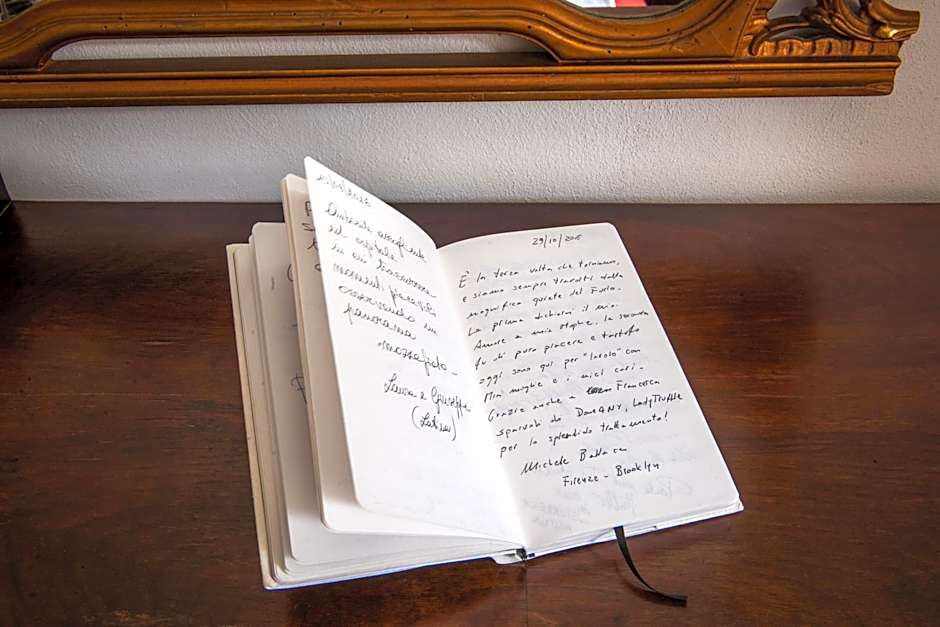 Ambiente accogliente
ed ospitale
in cui trascorrere
momenti piacevoli
osservando un
panorama
mozzafiato -
Laura e Giuseppe
(Latina)
29/10/2015
È la terza volta che torniamo,
e siamo sempre travolti dalla
magnifica quiete del Furlo.
La prima dichiarai il mio
Amore a mia moglie, la seconda
fu di puro piacere e tartufo
oggi sono qui per "lavoro" con
mia moglie e i miei cari.
Grazie anche a Francesca
DoveANY, LadyTruffle
per lo splendido trattamento!
Michele
Firenze - Brooklyn